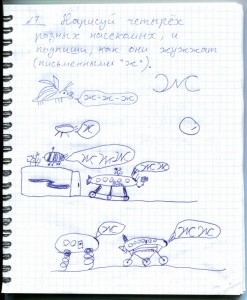 №7 Нарисуй четырёх
разных насекомых, и
подпиши, как они жужжат
(письменными "ж").
Ж
ж-ж-ж
ж
ЖЖЖ
ЖЖ
Ж
ЖЖ